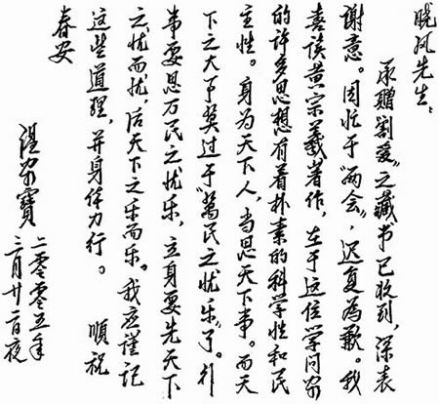 晓风先生：
承赠"割爱"之藏书已收到，深表
谢意。因忙于"两会"，迟复为歉。我
喜读黄宗羲著作，在于这位学问家
的许多思想有着朴素的科学性和民
主性。身为天下人，当思天下事。而天
下之大事莫过于"萬民之忧乐"了。行
事要思万民之忧乐，立身要先天下
之忧而忧，后天下之乐而乐。我应谨记
这些道理，并身体力行。 順祝
春安
温家寶
二零零五年
三月廿二日夜